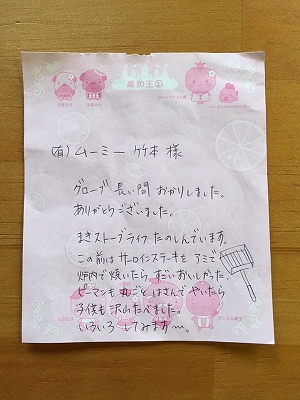 黒和王国
(有) ムーミー 竹本 様
グローブ 長い間 おかりしました。
ありがとうございました。
まきストーブライフ たのしんでいます。
この前は サーロインステーキを アミで
炉内で 焼いたら すごいおいしかった。
ピーマンも 丸ごと はさんで やいたら
子供も 沢山たべました。
いろいろ してみます〜。